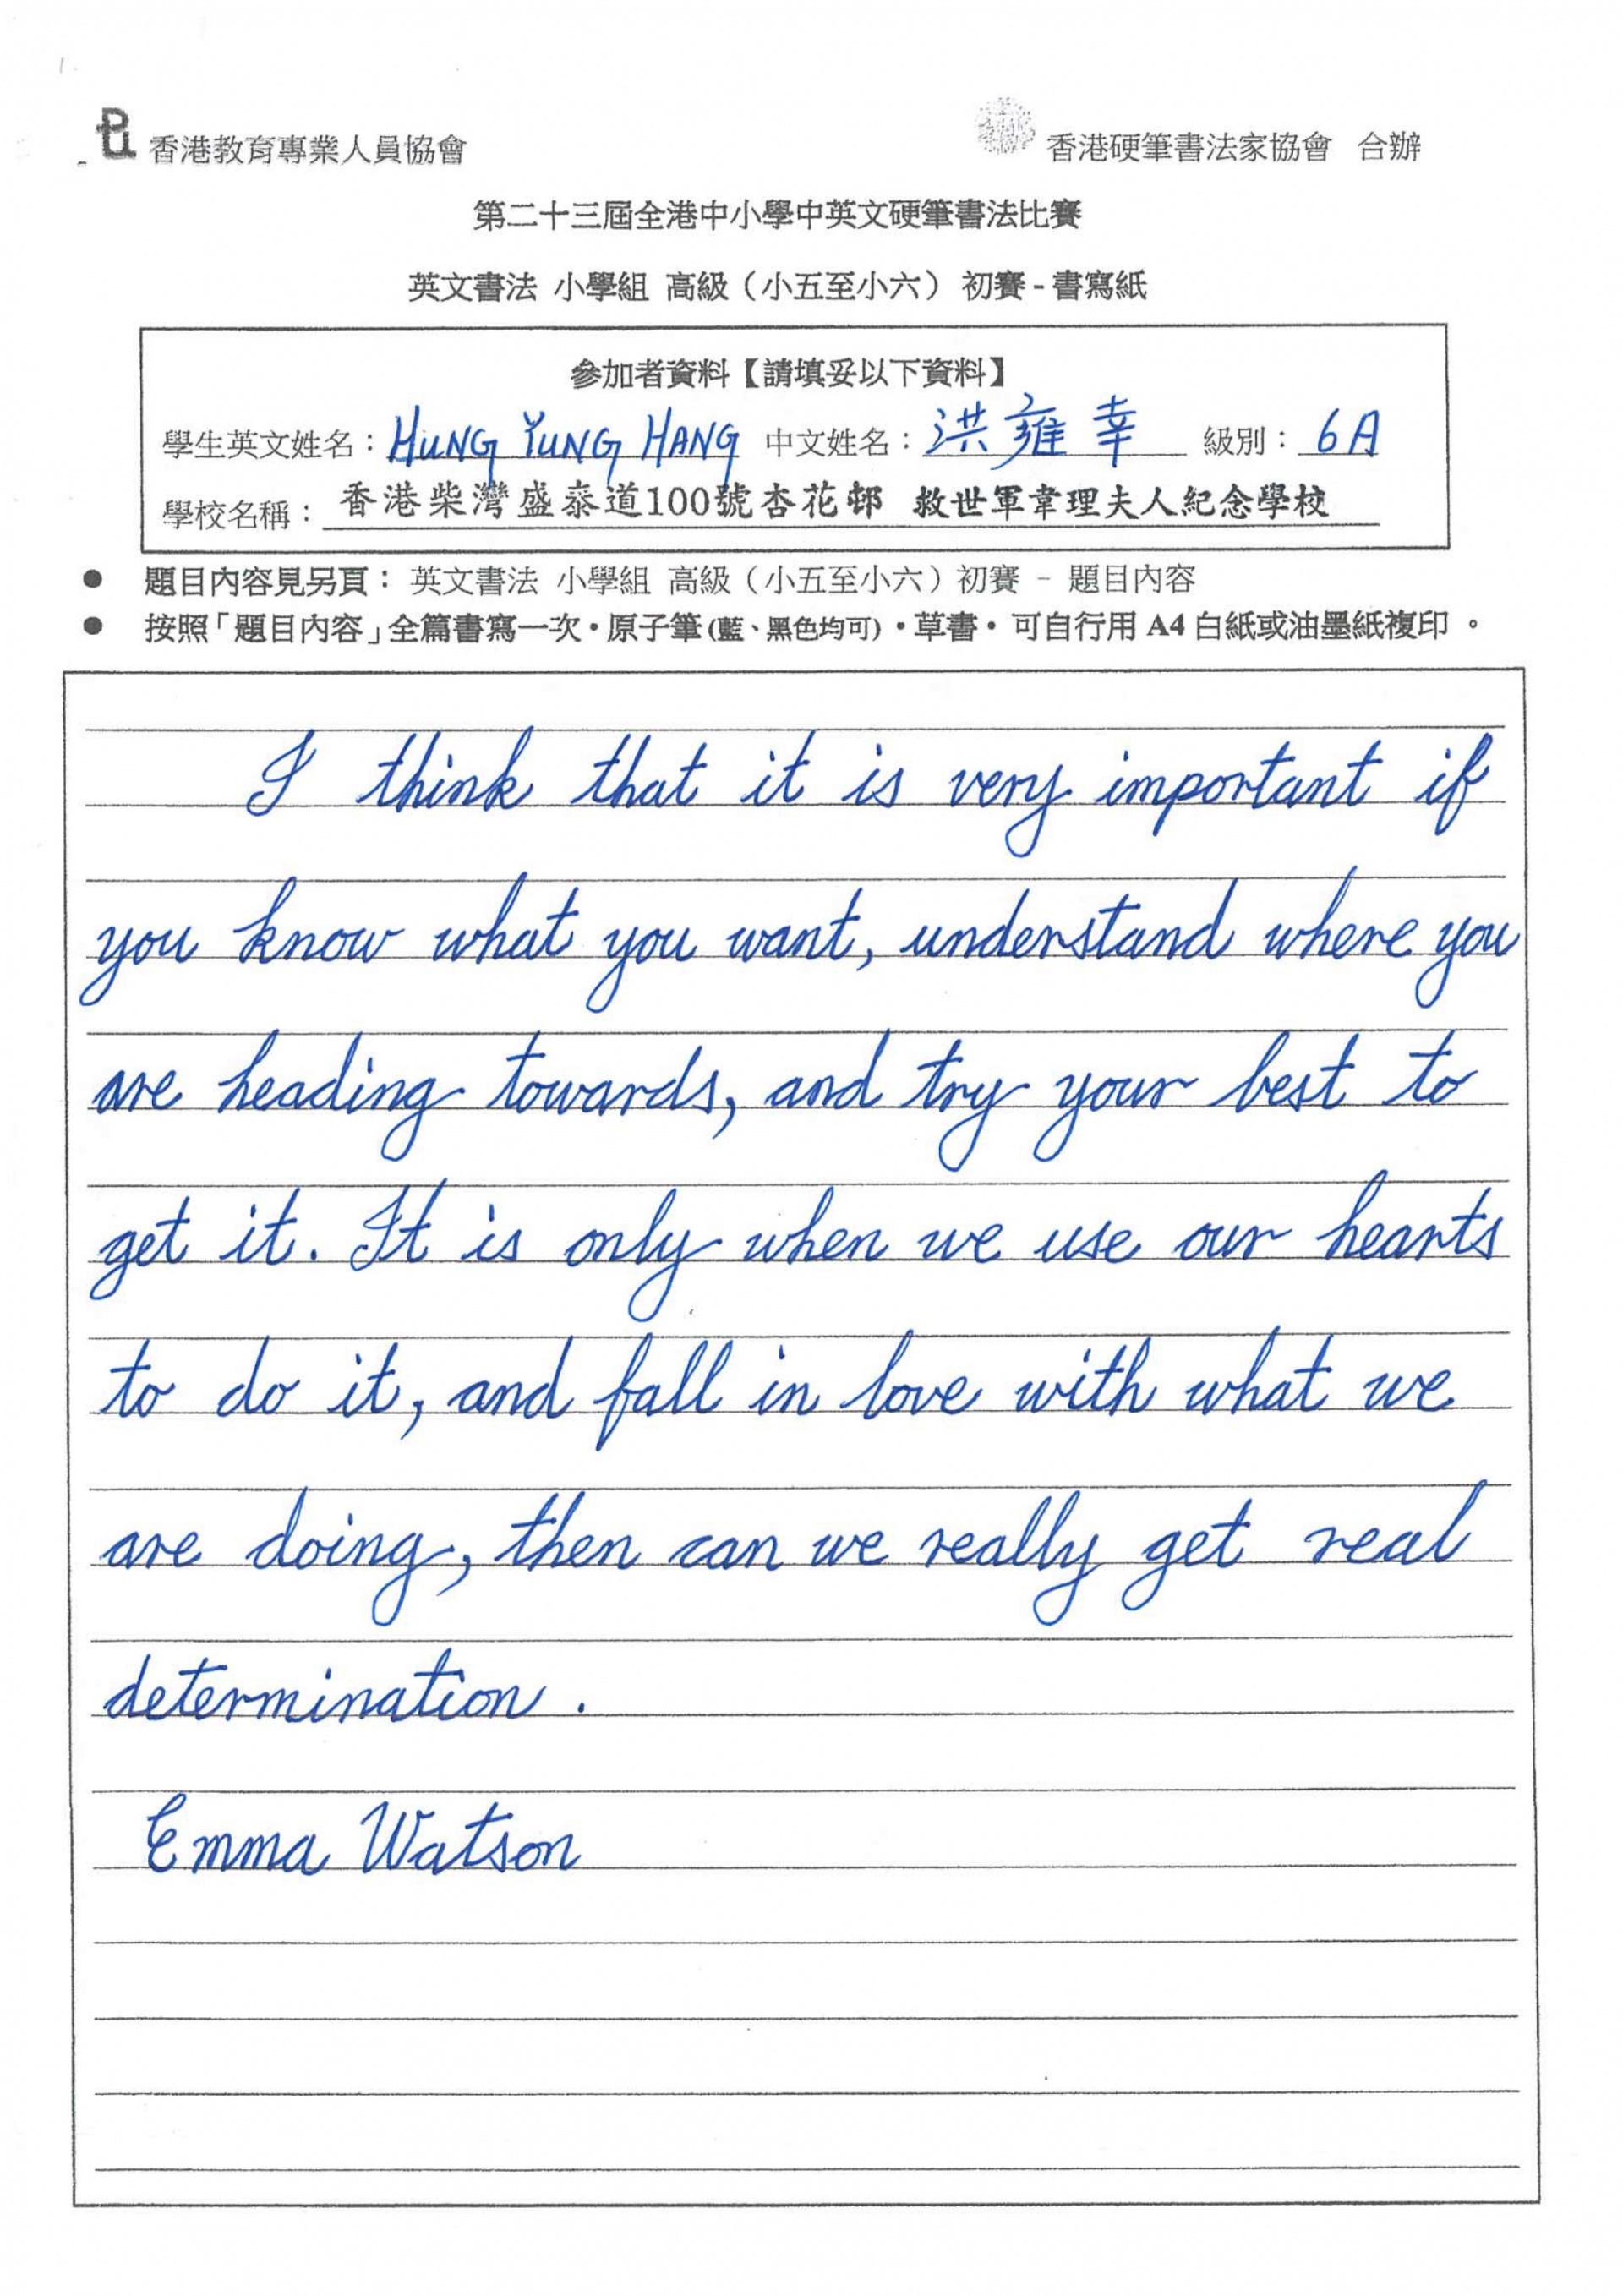 香港教育專業人員協會
香港硬筆書法家協會 合辦
第二十三屆全港中小學中英文硬筆書法比賽
英文書法 小學組 高級（小五至小六） 初賽 - 書寫紙
參加者資料【請填妥以下資料】
學生英文姓名：HUNG YUNG HANG 中文姓名：洪雍幸 級別：6A
學校名稱：香港柴灣盛泰道100號杏花邨 救世軍韋理夫人紀念學校
● 題目內容見另頁： 英文書法 小學組 高級（小五至小六）初賽 - 題目內容
● 按照「題目內容」全篇書寫一次・原子筆(藍、黑色均可)・草書・可自行用 A4 白紙或油墨紙複印 。
I think that it is very important if
you know what you want, understand where you
are heading towards, and try your best to
get it. It is only when we use our hearts
to do it, and fall in love with what we
are doing, then can we really get real
determination.
Emma Watson